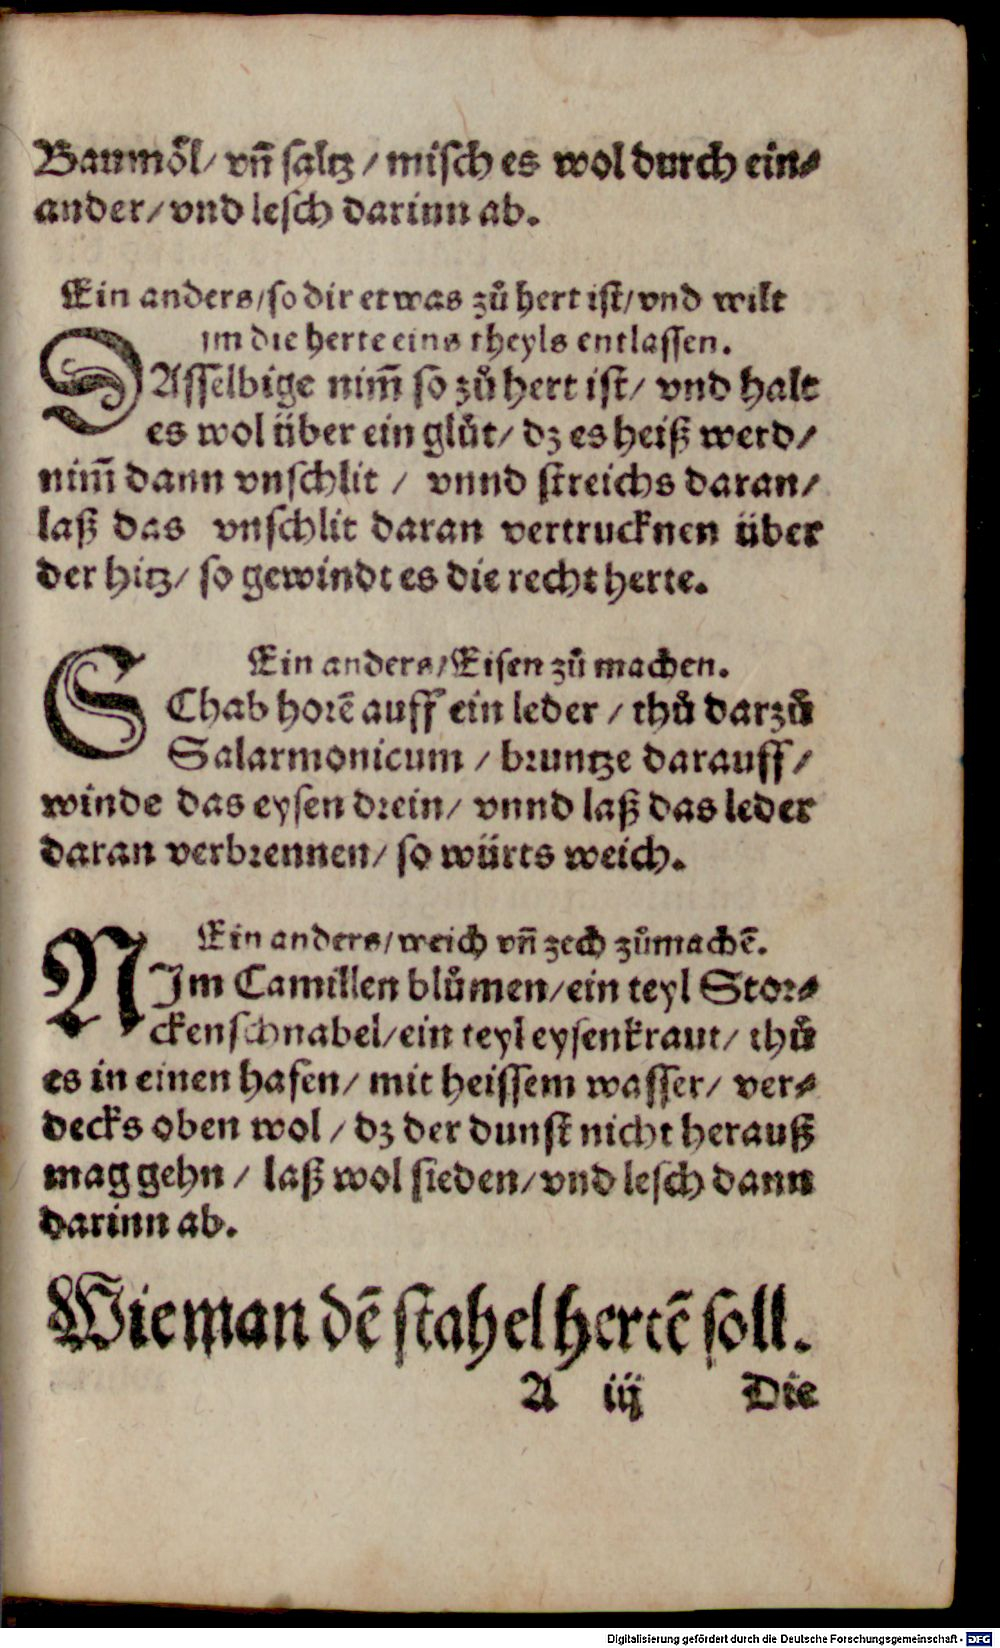 Baumoͤl/ vñ saltz / misch es wol durch ein⸗
ander/ vnd lesch darinn ab.
Ein anders/ so dir etwas zuͦ hert ist/ vnd wilt
im die herte eins theyls entlassen.
DAsselbige nim̃ so zuͦ hert ist/ vnd halt
es wol über ein gluͦt/ dz es heiß werd/
nim̃ dann vnschlit / vnnd streichs daran/
laß das vnschlit daran vertrucknen über
der hitz/ so gewindt es die recht herte.
Ein anders/ Eisen zuͦ machen.
SChab horẽ auff ein leder / thuͦ darzuͦ
Salarmonicum / bruntze darauff /
winde das eysen drein/ vnnd laß das leder
daran verbrennen/ so würts weich.
Ein anders/ weich vñ zech zuͦmachẽ.
NJm Camillen bluͦmen/ ein teyl Stor⸗
ckenschnabel/ ein teyl eysenkraut/ thuͦ
es in einen hafen/ mit heissem wasser/ ver⸗
decks oben wol / dz der dunst nicht herauß
mag gehn / laß wol sieden/ vnd lesch dann
darinn ab.
Wie man dẽ stahel hertẽ soll.
A iij Die
Digitalisierung gefördert durch die Deutsche Forschungsgemeinschaft - DFG